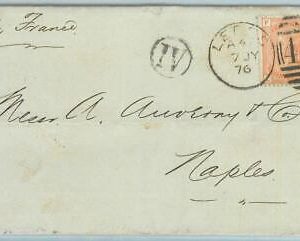 France
IV
LE
7 JY
76
4
P
Messrs A. Auverny & C
Naples